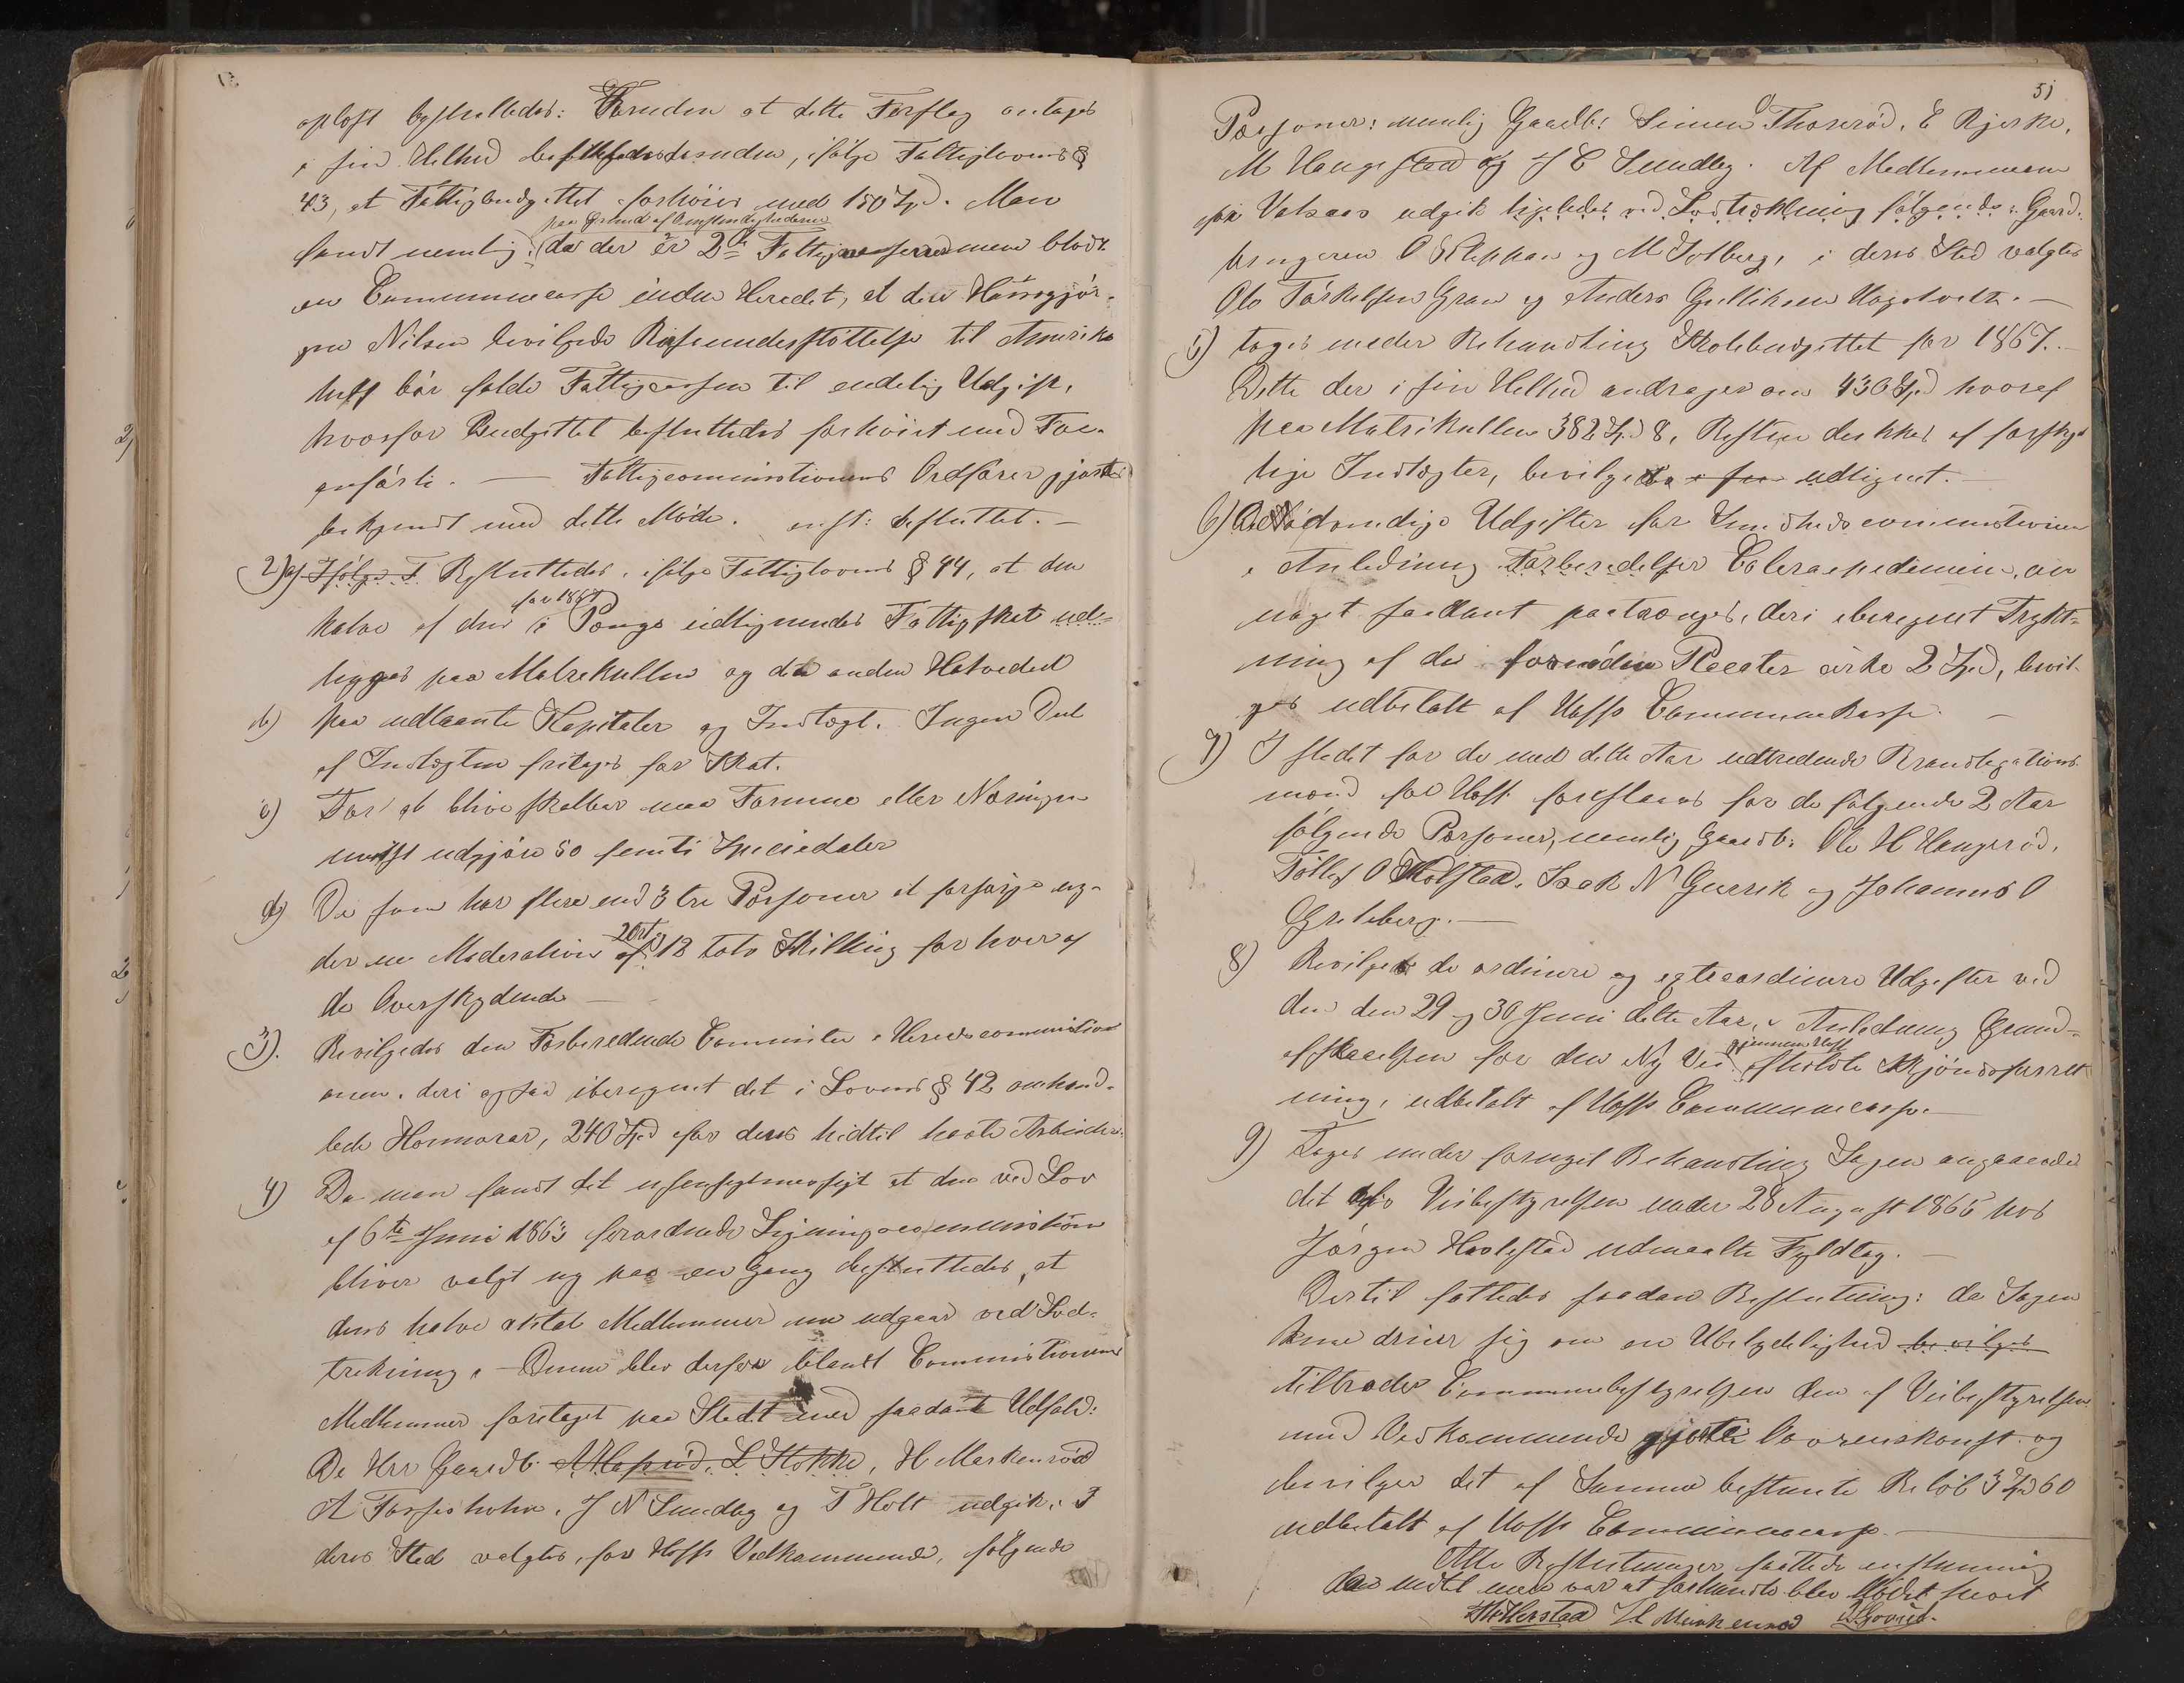 opløst besluttedes: Foruden at dette Forslag antages
i sin Helhed desuden, ifølge Fattiglovens §
43, at Fattigbudgettet forhøies med 150 Spd. Man
paa Grund af Omstændighederne
fandt nemlig, da der er 2de men blot
en Communecasse inden Heredet, at den
Nilsen bevilgede Reiseunderstøttelse til Amerika
helst bør falde Fattigcassen til endelig Udgift,
hvorfor Budgettet besluttedes forhøiet med For-
anførte. — Fattigcommissionens Ordfører gjordes
bekjendt med dette Møde. enst: besluttet. —
2) a) Ifølge F Besluttedes, ifølge Fattiglovens § 44, at den
for 1867
halve af den i Penge udlignende Fattigskat ud-
legges paa Matrikullen og den anden Halvedeel
b) paa udlaante Kapitaler og Indtægt. Ingen Deel
af Indtægten fritages for Skat.
c) For at blive skatbar maa Formue eller Næringen
mindst udgjøre 50 femti Speciedaler
d) De som har flere end 3 tre Personer at forsørge ny-
2 ort
der en Moderation af 12 tolv Skilling for hver af
de Overskydende —
3). Bevilgedes den Forberedende Committe i Heredscommission
onen, deri ogsaa iberegnet det i Lovens § 42 omhand-
lede Honnorar, 240 Spd for deres hidtil havte Arbeider.
4) Da man fandt det uhensigtmessigt at den ved Lov
af 6te Juni 1863 forordnede Ligningscommission
bliver valgt ny paa en Gang besluttedes, at
dens halve Antal Medlemmer nu udgaar ved Lod-
trekning. — Denne blev derfor blandt Commissionens
Medlemmer foretaget paa Stedet med saadant Udfald:
De Hrr Gaardb. L Stokke, H Markenrød
A Fossesholm, J N Sundby og T Holt udgik. I
deres Sted valgtes, for Hoffs Vedkommende, følgende
51
Personer: nemlig Gaardb: Simen Thorsrød, E Bjerke,
M Haugestad og J C Sundby. Af Medlemmerne
for Vaksaas udgik ligeledes ved Lodtrækning følgende: Gaard-
brugeren O Kleppan og M Solberg, i deres Sted valgtes
Ole Torkelsen Gran og Anders Gulliksen Hagetvedt. —
5) toges under Behandling Skolebudgettet for 1867. —
Dette der i sin Helhed andrager om 430 Spd hvoraf
paa Matrikullen 382 Spd 8, Resten dekkes af forskjel
lige Indtægter, bevilgedes udlignet. —
6) Nødvendige Udgifter for Sundhedscommissionen
i Anledning Forberedelser Coleraepidemien, om
noget saadant paatrænges, deri iberegnet Trykt-
ning af de fornødne Placater cirka 2 Spd, bevil-
ges udbetalt af Hoffs Communekasse. —
7) I stedet for de med dette Aar udtredende Brandtaxations
mænd for Hoff foreslaaes for de følgende 2 Aar
følgende Personer, nemlig Gaardb: Ole H Haugerød,
Tollef O Kolstad, Isak N Gurrik og Johannes O
Greteberg. —
8) Bevilgedes de ordinere og extraordinere Udgifter ved
den den 29 og 30 Juni dette Aar, i Anledning Grund-
gjennem Hoff
afstaaelsen for den Ny Vei afholdte Skjønsforret
ning, udbetalt af Hoffs Communecasse. —
9) Toges under fornyet Behandling Sagen angaaende
det af Veibestyrelsen under 28 August 1865 hos
Jørgen Haslestad udmaalte Fyldtag. —
Dertil fattedes saadan Beslutning: da Sagen
kun dreier sig om en Ubetydelighed bevilges
tiltræder Communebestyrelsen den af Veibestyrelsen
med Vedkommende gjorte Overenskomst og
bevilger det af Samme bestemte Beløb 3 Spd 60
udbetalt af Hoffs Communecasse. —
Alle Beslutninger fattede enstemmig
Da Intet mere var at forhandle blev Mødet hevet